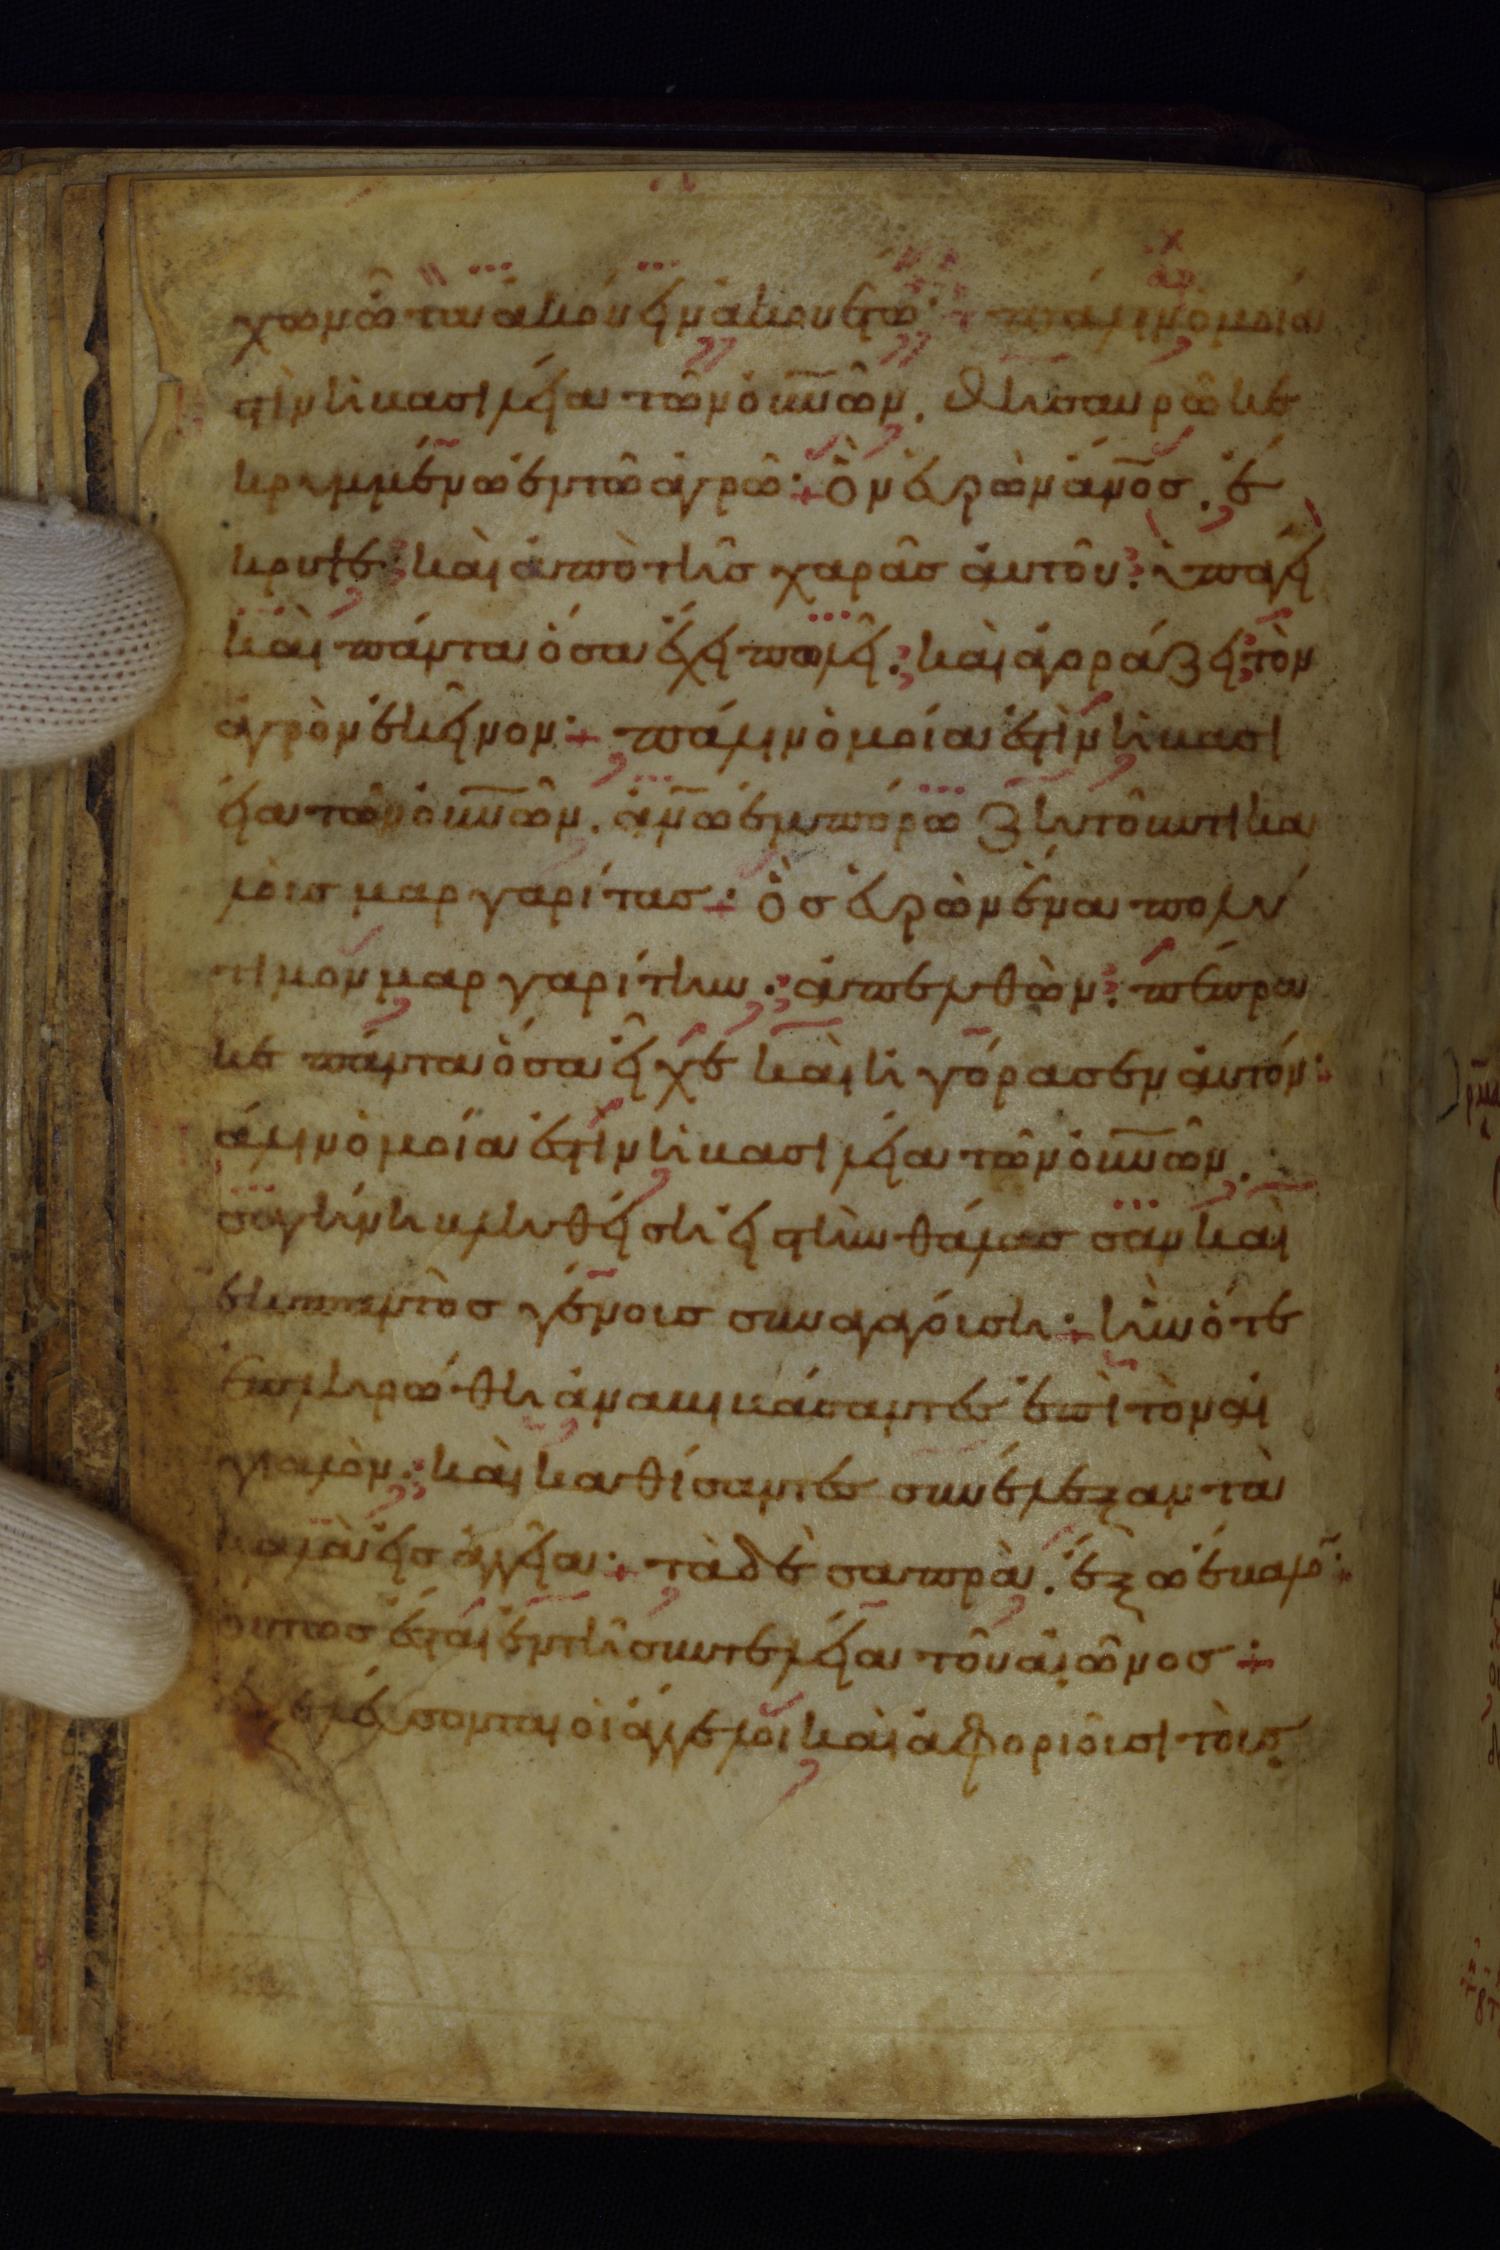 χων ὦτα ἀκούειν ἀκουέτω· πάλιν ὁμοία
ἐστὶν ἡ βασιλεία τῶν οὐ̅ν̅ῶν. θησαυρῶ κε
κρυμμένω ἐν τῶ ἀγρῶ· ὃν εὑρὼν ἄν̅ο̅σ. ἔ
κρυψε· καὶ ἀπὸ τῆσ χαρᾶσ αὐτοῦ· ὑπάγει
καὶ πάντα ὅσα ἔχει πωλεῖ· καὶ ἀγοράζει τὸν
ἀγρὸν ἐκεῖνον· πάλιν ὁμοία ἐστὶν ἡ βασι
λεία τῶν οὐ̅ν̅ῶν. ἀν̅ω ἐμπόρω ζητοῦντι κα
λοὺσ μαργαρίτασ· ὃσ εὑρὼν ἕνα πολύ
τιμον μαργαρίτην· ἀπελθὼν· πέπρα
κε πάντα ὅσα εἶχε καὶ ἠγόρασεν αὐτόν·
άλιν ὁμοία ἐστὶν ἡ βασιλεία τῶν οὐ̅ν̅ῶν.
σαγήνη βληθείση εἰσ τὴν θάλασσαν καὶ
ἐκ παντὸσ γένουσ συναγαγούση· ἣν ὅτε
ἐπληρώθη ἀναβιβάσαντεσ ἐπὶ τὸν αἰ
γιαλὸν· καὶ καθίσαντεσ συνέλεξαν τὰ
καλὰ εἰσ ἀγγεῖα· τὰ δὲ σαπρὰ. ἔξω ἔβαλο̅·
οὕτωσ ἔσται ἐν τῆ συντελεία τοῦ αἰῶνοσ·
ἐξελεύσονται οἱ ἄγγελοι καὶ ἀφοριοῦσι τοὺσ